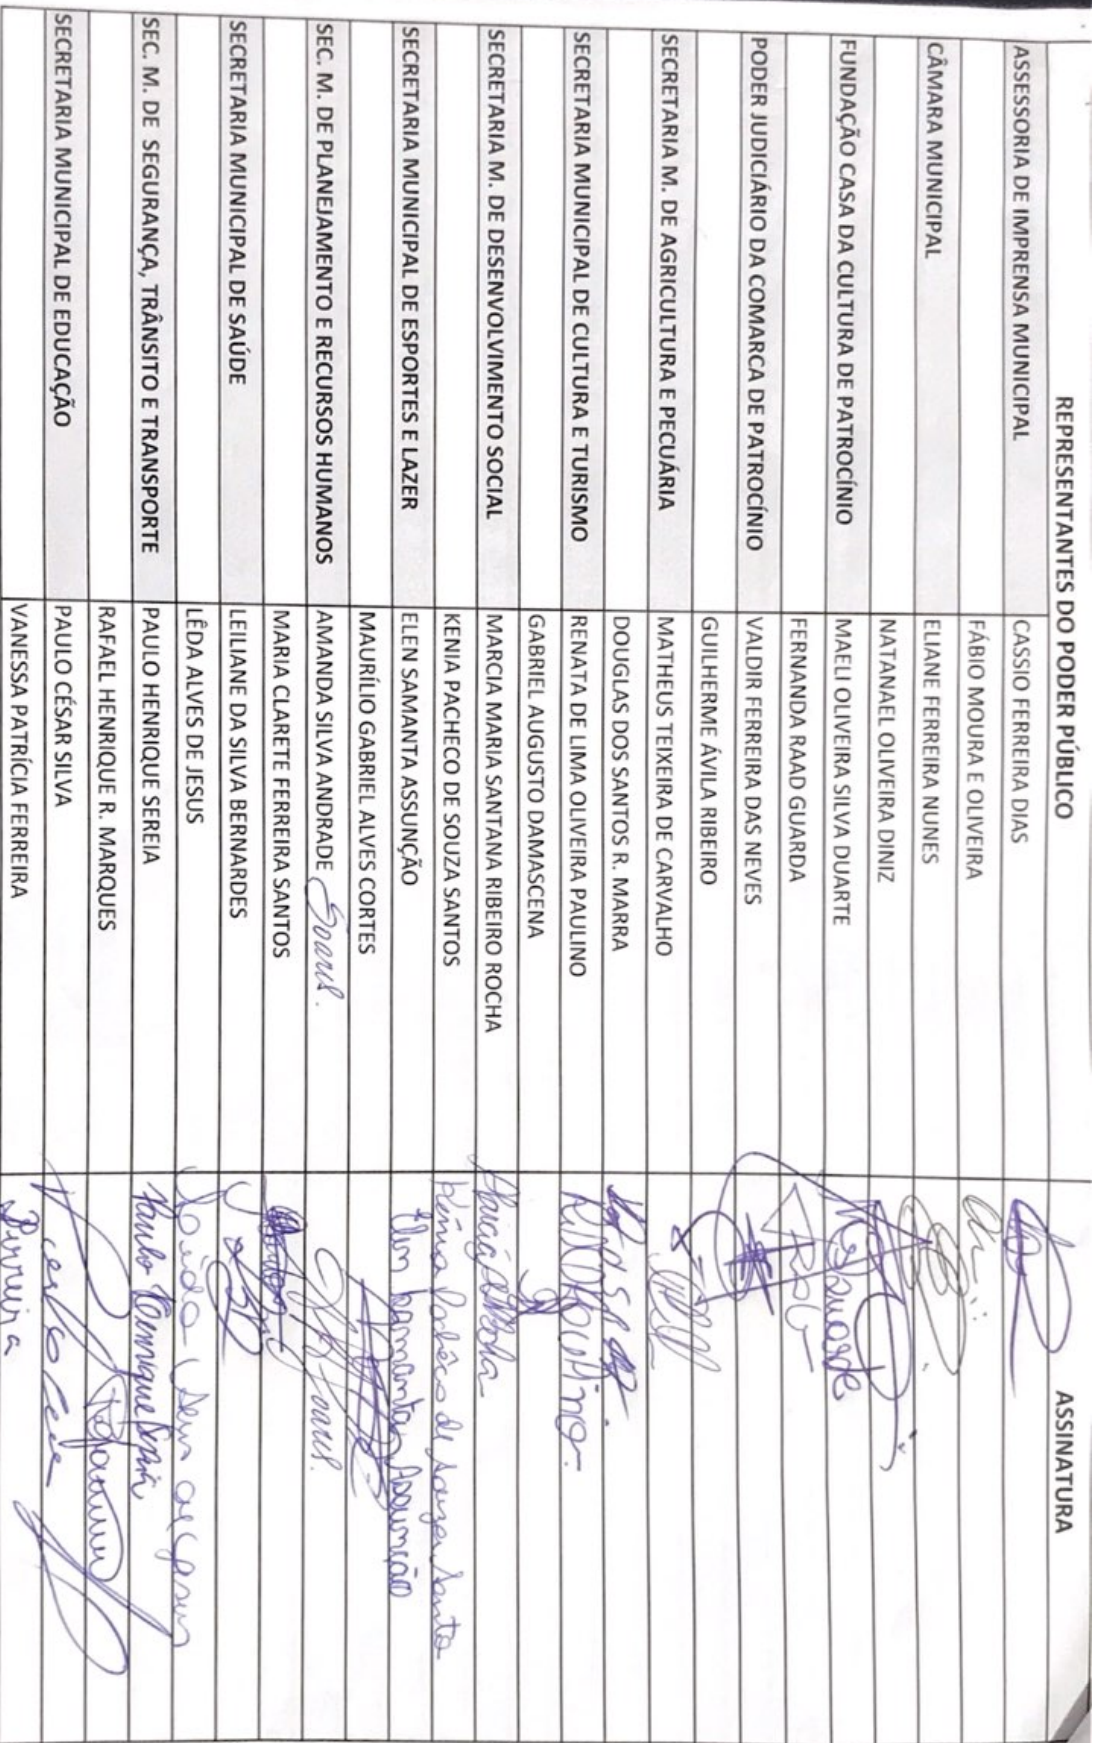 REPRESENTANTES DO PODER PÚBLICO ASSINATURA
ASSESSORIA DE IMPRENSA MUNICIPAL CASSIO FERREIRA DIAS
FÁBIO MOURA E OLIVEIRA
CÂMARA MUNICIPAL ELIANE FERREIRA NUNES
NATANAEL OLIVEIRA DINIZ
FUNDAÇÃO CASA DA CULTURA DE PATROCÍNIO MAELI OLIVEIRA SILVA DUARTE
FERNANDA RAAD GUARDA
PODER JUDICIÁRIO DA COMARCA DE PATROCÍNIO VALDIR FERREIRA DAS NEVES
GUILHERME ÁVILA RIBEIRO
SECRETARIA M. DE AGRICULTURA E PECUÁRIA MATHEUS TEIXEIRA DE CARVALHO
DOUGLAS DOS SANTOS R. MARRA
SECRETARIA MUNICIPAL DE CULTURA E TURISMO RENATA DE LIMA OLIVEIRA PAULINO
GABRIEL AUGUSTO DAMASCENA
SECRETARIA M. DE DESENVOLVIMENTO SOCIAL MARCIA MARIA SANTANA RIBEIRO ROCHA
KENIA PACHECO DE SOUZA SANTOS Kênia Pachêco de Souza Santos
SECRETARIA MUNICIPAL DE ESPORTES E LAZER ELEN SAMANTA ASSUNÇÃO Elen Samanta Assunção
MAURÍLIO GABRIEL ALVES CORTES
SEC. M. DE PLANEJAMENTO E RECURSOS HUMANOS AMANDA SILVA ANDRADE Soares.
MARIA CLARETE FERREIRA SANTOS
SECRETARIA MUNICIPAL DE SAÚDE LEILIANE DA SILVA BERNARDES
LÊDA ALVES DE JESUS
SEC. M. DE SEGURANÇA, TRÂNSITO E TRANSPORTE PAULO HENRIQUE SEREIA Paulo Henrique Sereia
RAFAEL HENRIQUE R. MARQUES
SECRETARIA MUNICIPAL DE EDUCAÇÃO PAULO CÉSAR SILVA
VANESSA PATRÍCIA FERREIRA Ferreira